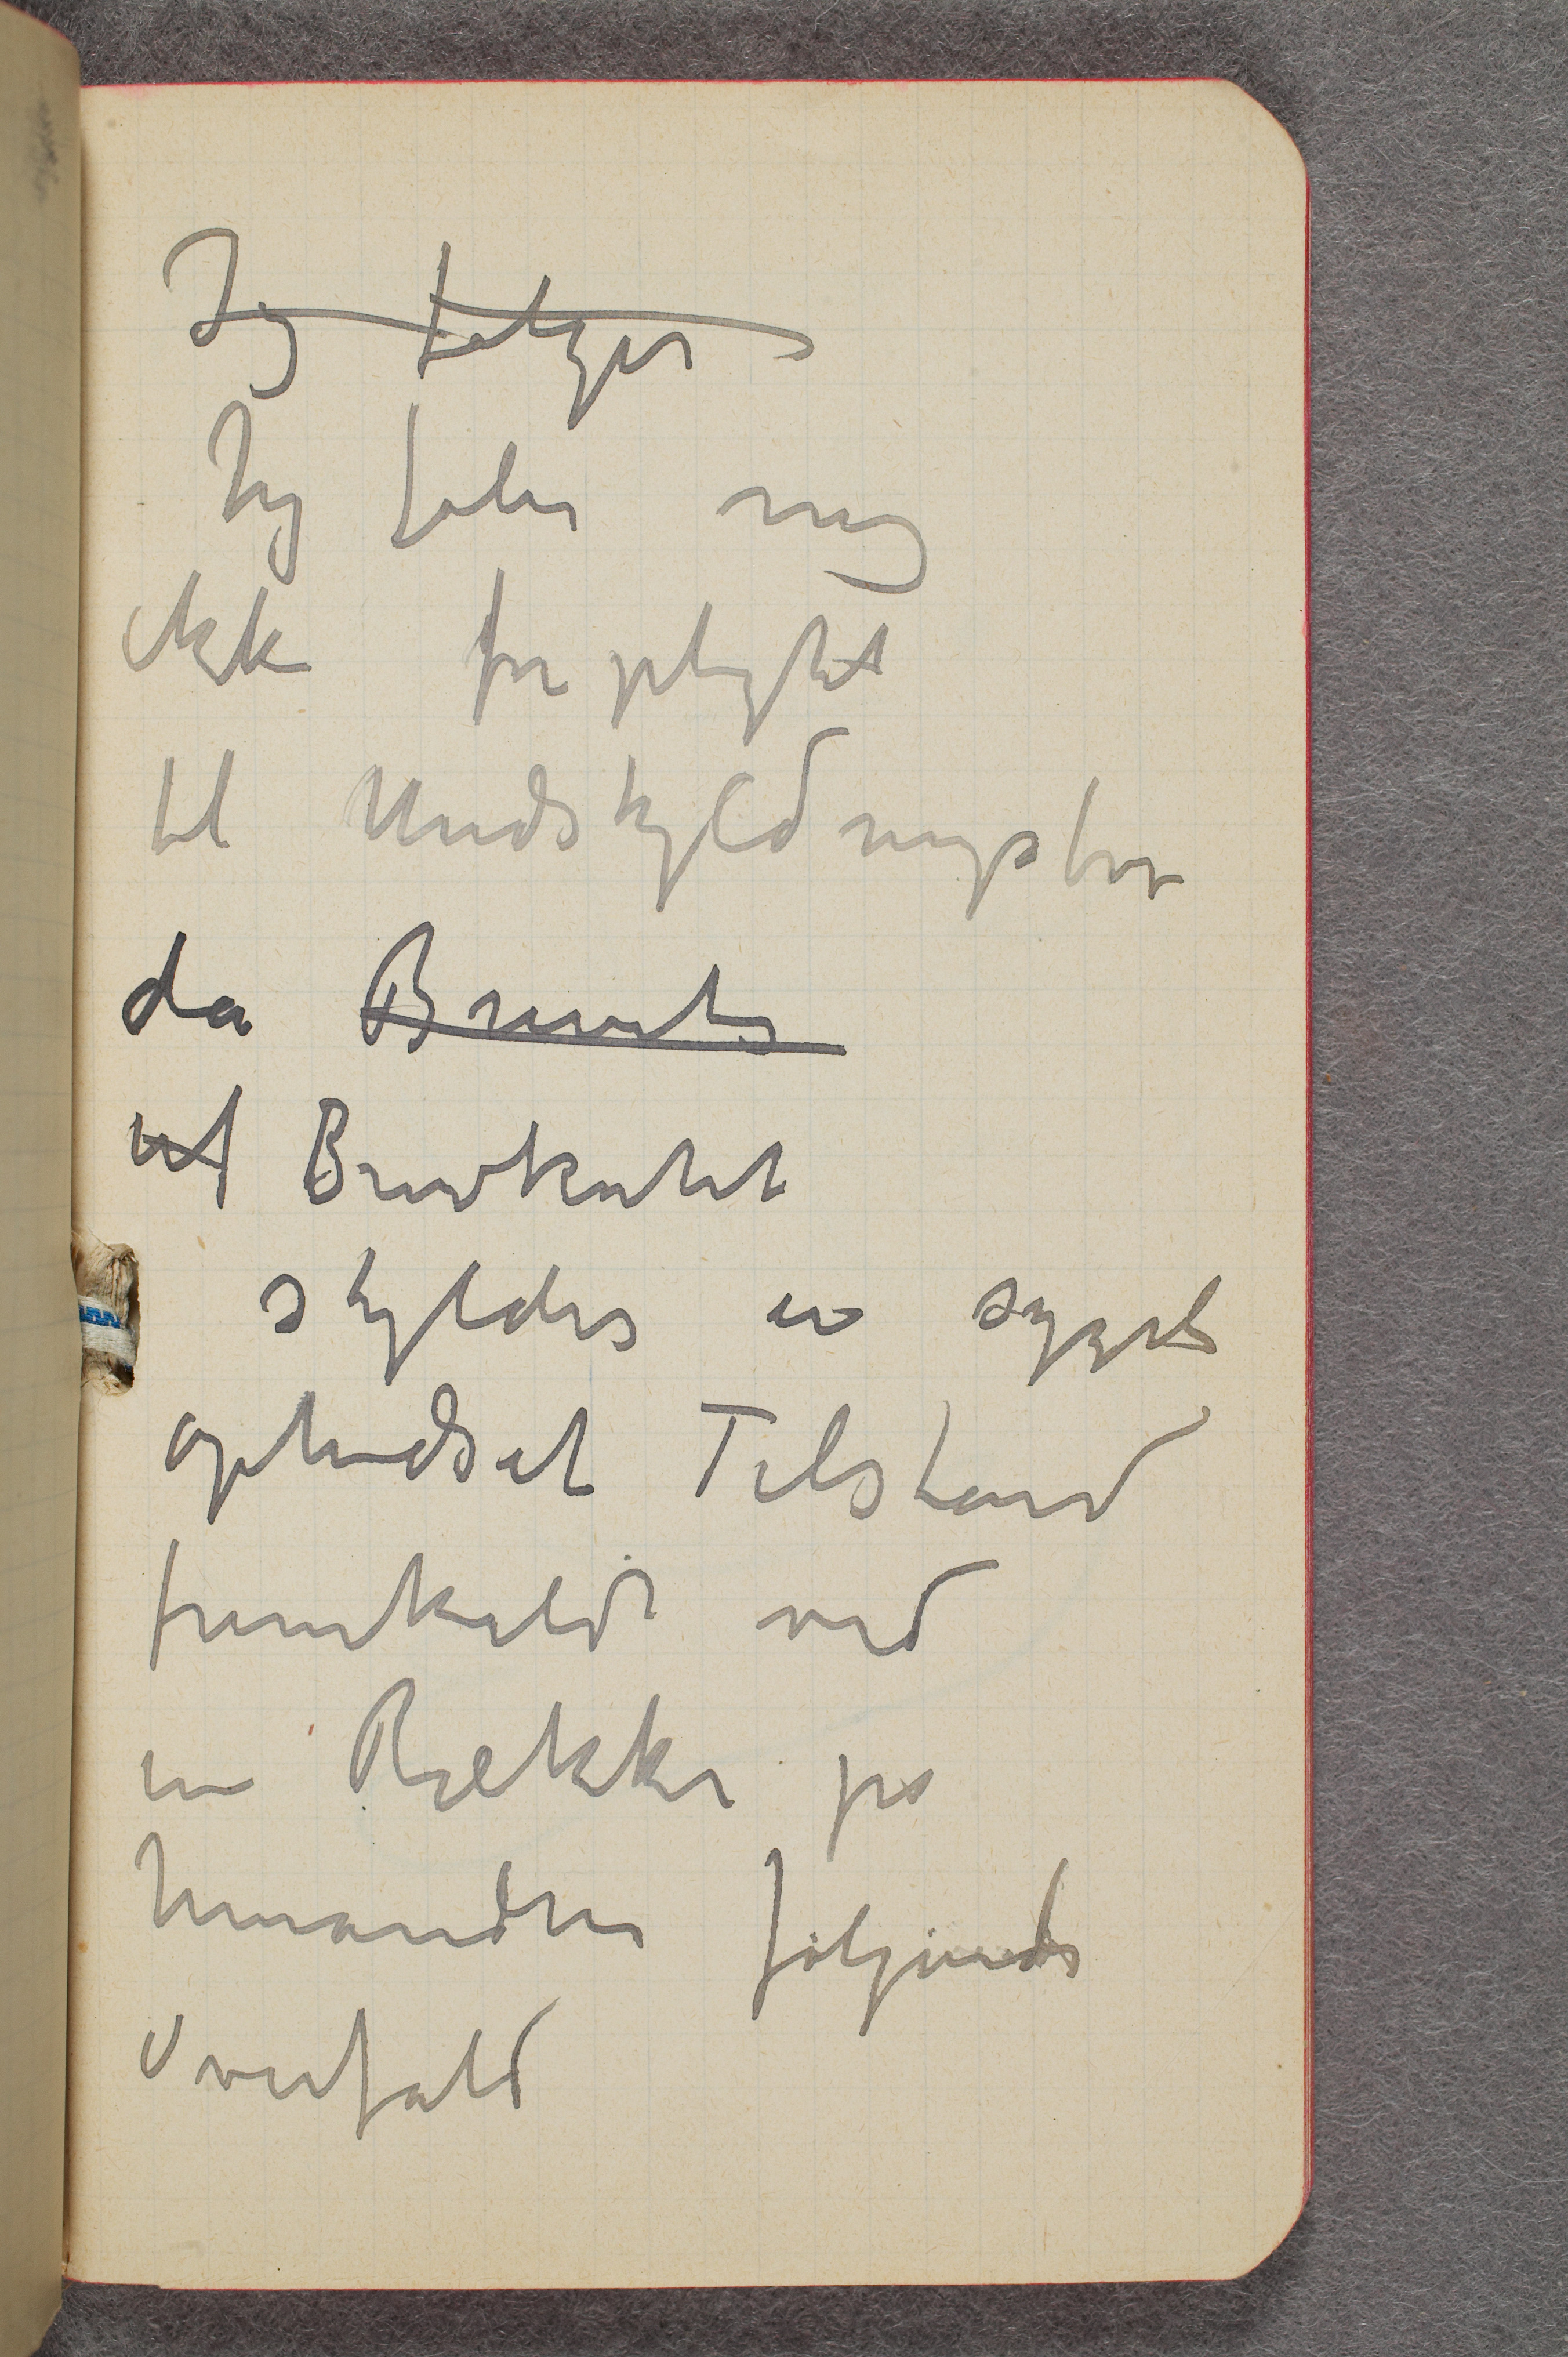 Jeg følger
Jeg føler mig
ikke forpligtet
til Undskyldningsbrev
da Brevet
et Brevkortet
skyldes en sygelig
ophidset Tilstand
fremkaldt ved
en Rækker på
hinanden følgende
Overfald